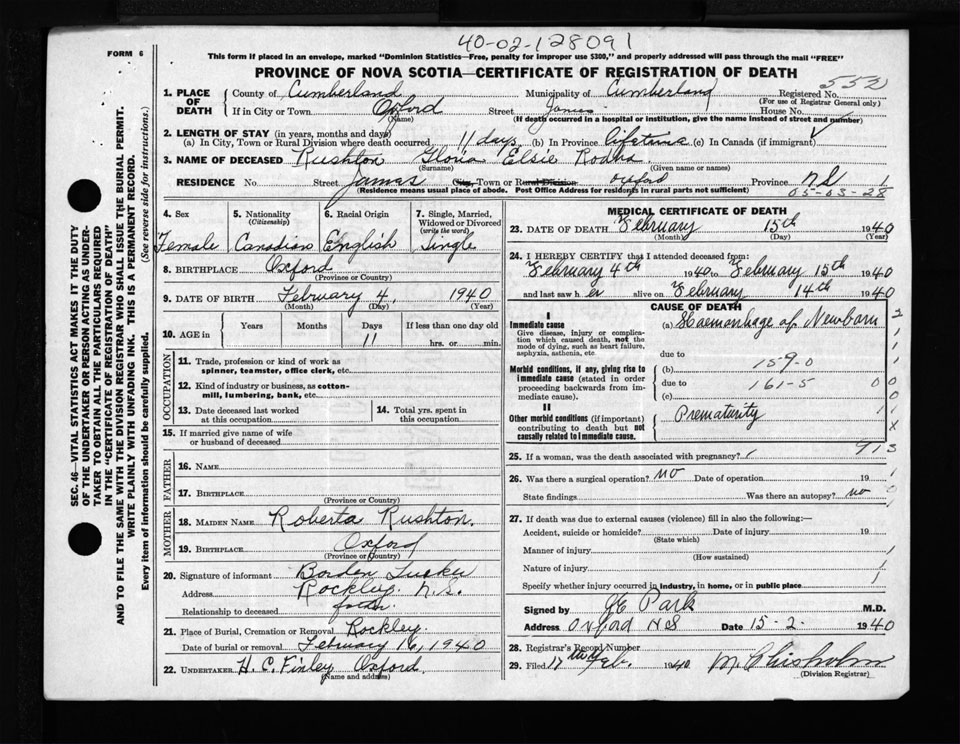 40-02-128091
FORM 6
This form if placed in an envelope, marked "Dominion Statistics—Free, penalty for improper use $300," and properly addressed will pass through the mail "FREE"
PROVINCE OF NOVA SCOTIA—CERTIFICATE OF REGISTRATION OF DEATH
SEC. 46—VITAL STATISTICS ACT MAKES IT THE DUTY
OF THE UNDERTAKER OR PERSON ACTING AS UNDER-
TAKER TO OBTAIN ALL THE PARTICULARS REQUIRED
IN THE "CERTIFICATE OF REGISTRATION OF DEATH"
AND TO FILE THE SAME WITH THE DIVISION REGISTRAR WHO SHALL ISSUE THE BURIAL PERMIT.
WRITE PLAINLY WITH UNFADING INK. THIS IS A PERMANENT RECORD.
Every item of information should be carefully supplied. (See reverse side for instructions.)
1. PLACE OF DEATH County of Cumberland Municipality of Cumberland Registered No. 552
(For use of Registrar General only)
If in City or Town Oxford Street James House No.
(Name) (If death occurred in a hospital or institution, give the name instead of street and number)
2. LENGTH OF STAY (in years, months and days)
(a) In City, Town or Rural Division where death occurred 11 days (b) In Province lifetime (c) In Canada (if immigrant)
3. NAME OF DECEASED Rushton Gloria Elsie
(Surname) (Given name or names)
RESIDENCE No Street James City, Town or Rural Division Oxford Province N.S. 1
(Residence means usual place of abode. Post Office Address for residents in rural parts not sufficient)
05-03-28
4. Sex 5. Nationality 6. Racial Origin 7. Single, Married,
(Citizenship) Widowed or Divorced
(write the word)
Female Canadian English Single
8. BIRTHPLACE Oxford
(Province or Country)
9. DATE OF BIRTH February 4, 1940
(Month) (Day) (Year)
10. AGE in Years Months Days If less than one day old
11 hrs. or min.
OCCUPATION
11. Trade, profession or kind of work as
spinner, teamster, office clerk, etc.
12. Kind of industry or business, as cotton-
mill, lumbering, bank, etc.
13. Date deceased last worked
at this occupation
14. Total yrs. spent in
this occupation
15. If married give name of wife
or husband of deceased
FATHER
16. NAME
17. BIRTHPLACE
(Province or Country)
MOTHER
18. MAIDEN NAME Roberta Rushton.
19. BIRTHPLACE Oxford
(Province or Country)
20. Signature of informant Borden Tucker
Address Rockley N.S.
Relationship to deceased father.
21. Place of Burial, Cremation or Removal Rockley
Date of burial or removal February 16, 1940
22. UNDERTAKER H. C. Finley Oxford
(Name and address)
MEDICAL CERTIFICATE OF DEATH
23. DATE OF DEATH February 15th 1940
(Month) (Day) (Year)
24. I HEREBY CERTIFY that I attended deceased from:
February 4th 1940 to February 15th 1940
and last saw her alive on February 14th 1940
CAUSE OF DEATH
I
Immediate cause (a) Haemorrhage of Newborn
Give disease, injury or complica-
tion which caused death, not the
mode of dying, such as heart failure,
asphyxia, asthenia, etc
due to
Morbid conditions, if any, giving rise to
immediate cause (stated in order
proceeding backwards from im-
mediate cause).
(b) 159-0
due to 161-5
(c)
II
Other morbid conditions (if important)
contributing to death but not
causally related to immediate cause.
Prematurity
25. If a woman, was the death associated with pregnancy? 913
26. Was there a surgical operation? No Date of operation 19
State findings Was there an autopsy? No
27. If death was due to external causes (violence) fill in also the following:—
Accident, suicide or homicide? Date of injury 19
(State which)
Manner of injury
(How sustained)
Nature of injury
Specify whether injury occurred in industry, in home, or in public place
Signed by Park M.D.
Address Oxford N S Date 15-2- 1940
28. Registrar's Record Number
29. Filed 17 Feb. 1940 M. Chisholm
(Division Registrar)